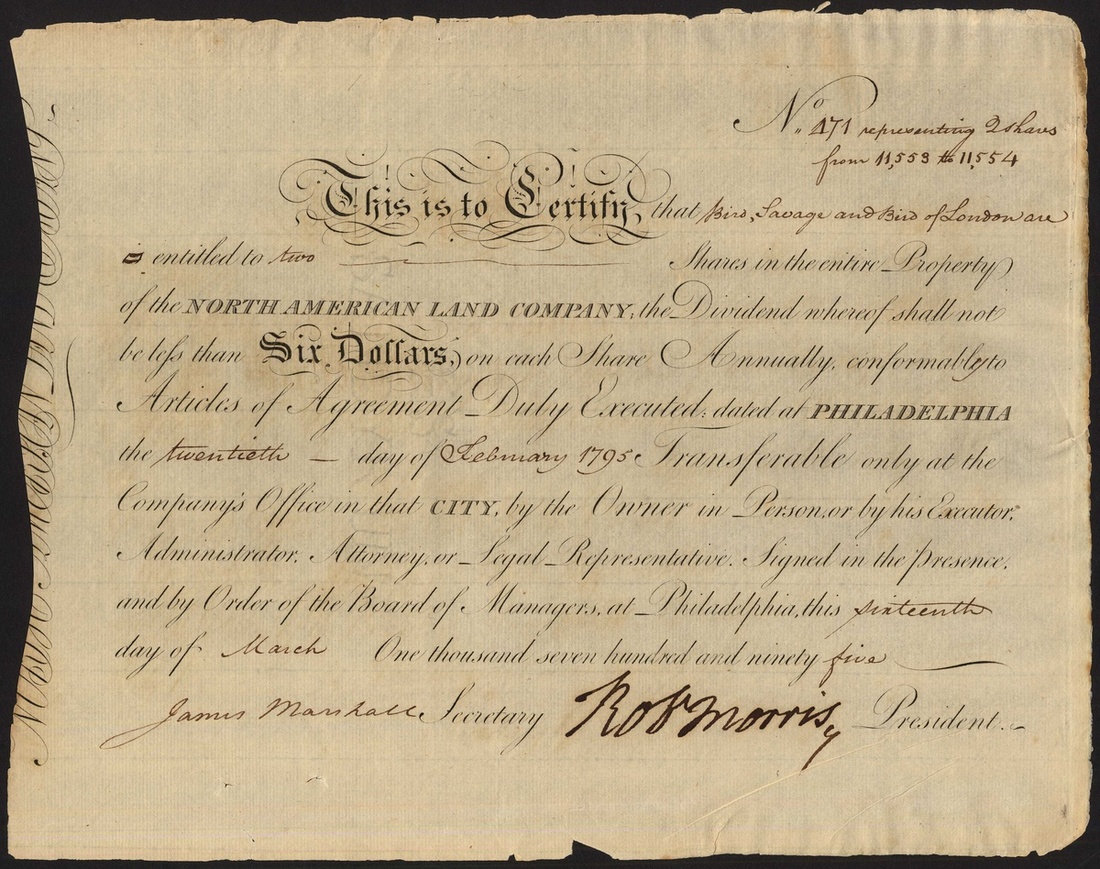 No. 471 representing 2 shares
from 11,553 to 11,554
This is to Certify, that Bird, Savage and Bird of London are
is entitled to two Shares in the entire Property
of the NORTH AMERICAN LAND COMPANY, the Dividend whereof shall not
be less than Six Dollars, on each Share Annually, conformably to
Articles of Agreement Duly Executed; dated at PHILADELPHIA
the twentieth day of February 1795. Transferable only at the
Company's Office in that CITY, by the Owner in Person, or by his Executor,
Administrator, Attorney, or Legal Representative. Signed in the presence,
and by Order of the Board of Managers, at Philadelphia, this sixteenth
day of March One thousand seven hundred and ninety five
James Marshall Secretary Rob Morris President.